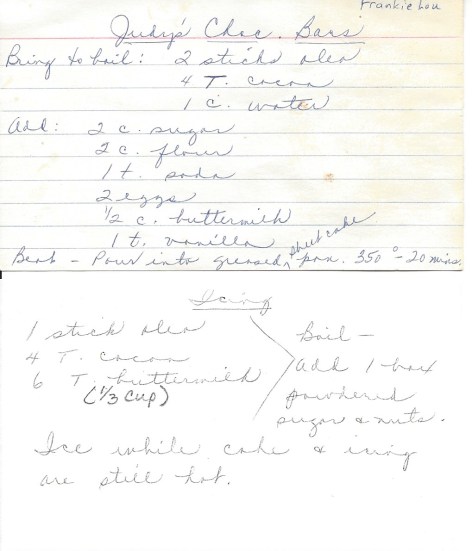 Frankie Lou
Judy's Choc. Bars
Bring to boil: 2 sticks oleo
4 T. cocoa
1 c. water
Add: 2 c. sugar
2 c. flour
1 t. soda
2 eggs
1/2 c. buttermilk
1 t. vanilla
Beat - Pour into greased sheet cake pan. 350° - 20 mins.
Icing
1 stick oleo
4 T. cocoa
6 T. buttermilk
(1/3 cup)
Boil -
add 1 box
powdered
sugar & nuts.
Ice while cake & icing
are still hot.